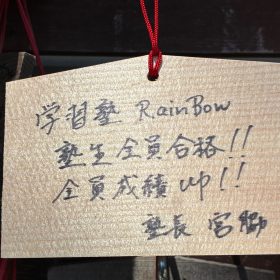 学習塾 RainBow
塾生全員合格!!
全員成績up!!
塾長 宮脇